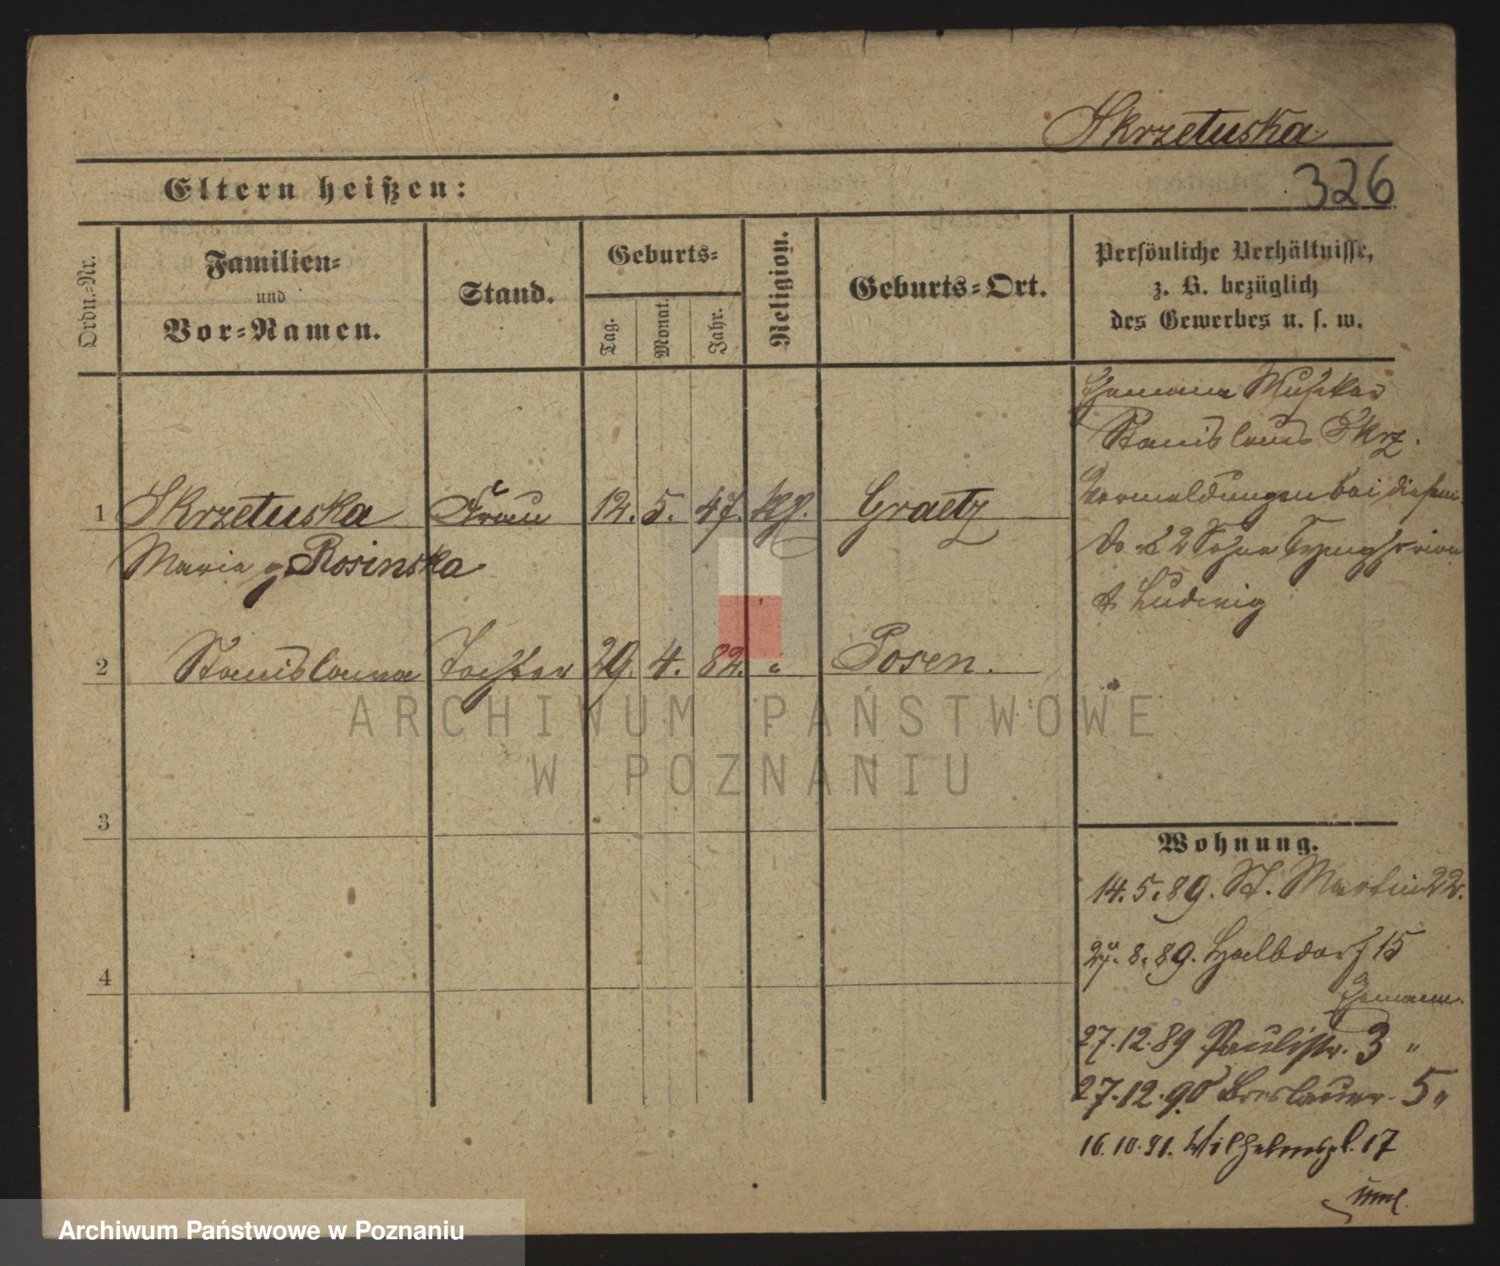 Skrzetuska
326
Eltern heißen:
Ordn.-Nr.
Familien-
und
Vor-Namen.
Stand.
Geburts-
Tag.
Monat.
Jahr.
Religion.
Geburts-Ort.
Persönliche Verhältnisse,
z. B. bezüglich
des Gewerbes u. s. w.
1 Skrzetuska Frau 12. 5. 47. Graetz
Maria g. Rosinska
2 Stanislawa Tochter 29. 4. 82. " Posen.
3
4
Ehemann Musikus
Stanislaus Skrz.
Vermeldungen bei diesem
2 Söhne
& Ludwig
Wohnung.
14.5.89. St. Martin 22.
27.8.89. Halbdorf 15
Ehemann.
27.12.89 Paulistr. 3 "
27.12.90 Breslauer. 5 "
16.10.91. Wilhelmspl. 17
ARCHIWUM PAŃSTWOWE
W POZNANIU
Archiwum Państwowe w Poznaniu